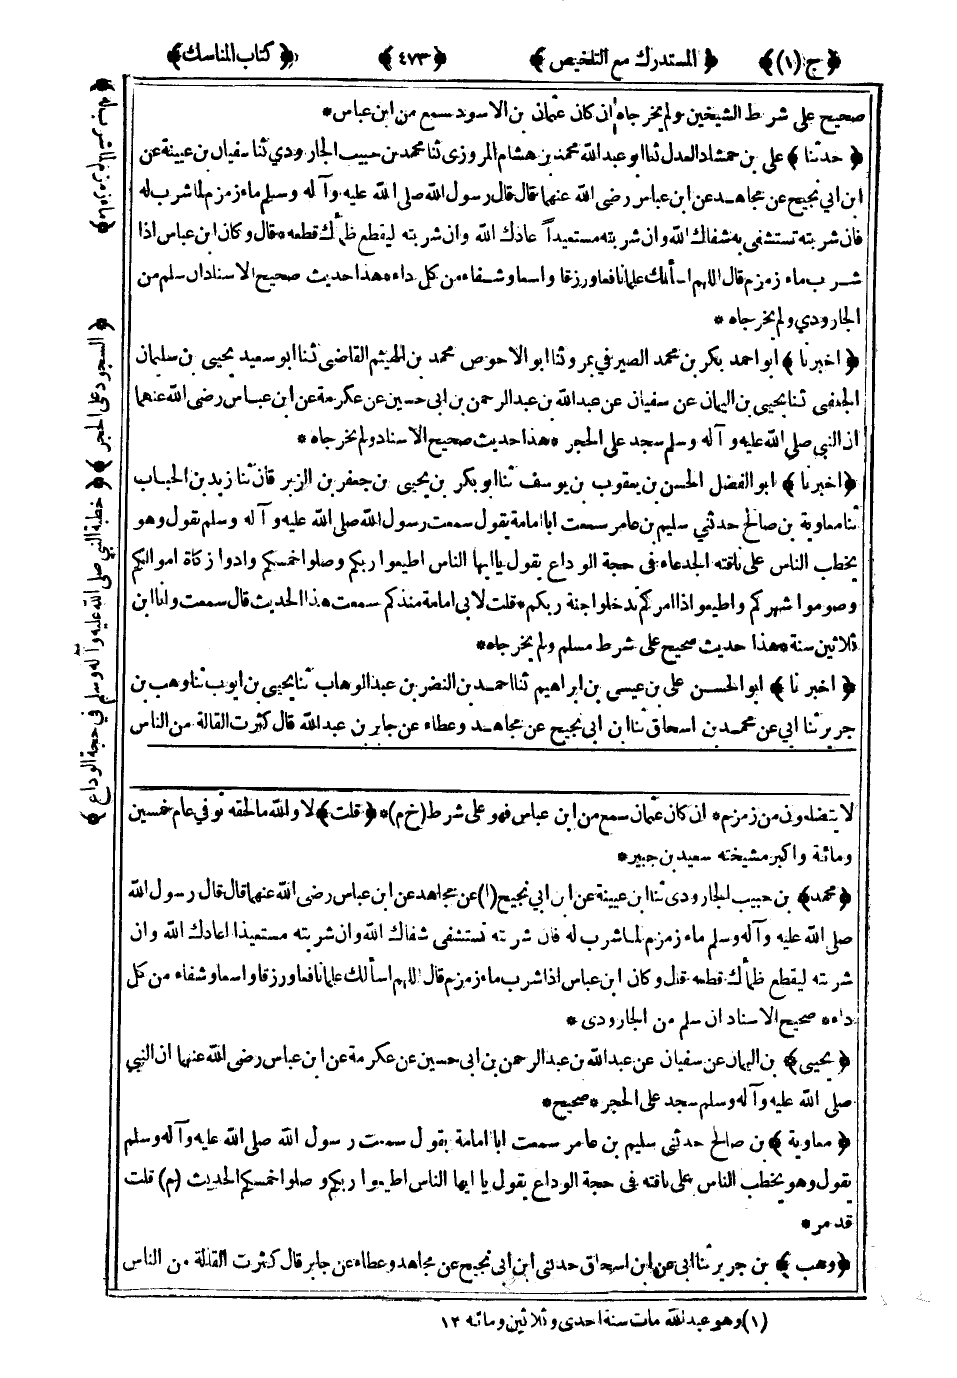 ﴿ ج (١) ﴾ ﴿ المستدرك مع التلخيص ﴾ ﴿ ٤٧٣ ﴾ ﴿ كتاب المناسك ﴾
صحيح على شرط الشيخين ولم يخرجاه ان كان عثمان بن الاسود سمع من ابن عباس*
﴿ حدثنا ﴾ على بن حمشاد العدل ثنا ابو عبد الله محمد بن هشام المروزى ثنا محمد بن حبيب الجارودي ثنا سفيان بن عيينة عن
ابن ابي نجيح عن مجاهد عن ابن عباس رضى الله عنهما قال قال رسول الله صلى الله عليه وآله وسلم ماء زمزم لما شرب له
فان شربته تستشفى به شفاك الله وان شربته مستعيذاً عاذك الله وان شربته ليقطع ظمأك قطعه* قال وكان ابن عباس اذا
شرب ماء زمزم قال اللهم اسألك علما نافعا ورزقا واسعا وشفاء من كل داء* هذا حديث صحيح الاسناد ان سلم من
الجارودي ولم يخرجاه *
﴿ اخبرنا ﴾ ابو احمد بكر بن محمد الصيرفي بمرو ثنا ابو الاحوص محمد بن الهيثم القاضى ثنا ابو سعيد يحيى بن سليمان
الجعفى ثنا يحيى بن اليمان عن سفيان عن عبد الله بن عبد الرحمن بن ابى حسين عن عكرمة عن ابن عباس رضى الله عنهما
ان النبي صلى الله عليه وآله وسلم سجد على الحجر *هذا حديث صحيح الاسناد ولم يخرجاه *
﴿اخبرنا ﴾ ابو الفضل الحسن بن يعقوب بن يوسف ثنا ابو بكر بن يحيى بن جعفر بن الزبر قان ثنا زيد بن الحباب
ثنا معاوية بن صالح حدثني سليم بن عامر سمعت ابا امامة يقول سمعت رسول الله صلى الله عليه وآله وسلم يقول وهو
يخطب الناس على ناقته الجدعاء فى حجة الوداع يقول يا ايها الناس اطيعوا ربكم وصلوا خمسكم وادوا زكاة اموالكم
وصوموا شهركم واطيعوا ذا امركم تدخلوا جنة ربكم* قلت لابى امامة منذ كم سمعت هذا الحديث قال سمعت وانا ابن
ثلاثين سنة* هذا حديث صحيح على شرط مسلم ولم يخرجاه*
﴿ اخبرنا ﴾ ابو الحسن على بن عيسى بن ابراهيم ثنا احمد بن النضر بن عبد الوهاب ثنا يحيى بن ايوب ثنا وهب بن
جرير ثنا ابي عن محمد بن اسحاق ثنا ابن ابى نجيح عن مجاهد وعطاء عن جابر بن عبد الله قال كثرت القالة من الناس
ماء زمزم لما شرب له
﴿ السجود على الحجر ﴾
﴿ خطبة النبي صلى الله عليه وآله وسلم في حجة الوداع ﴾
لا يتضلعون من زمزم* ان كان عثمان سمع من ابن عباس فهو على شرط (خ م)* ﴿ قلت ﴾ لا والله ما لحقه توفي عام خمسين
ومائة واكبر مشيخته سعيد بن جبير*
﴿محمد﴾ بن حبيب الجارودى ثنا ابن عيينة عن ابن ابي نجيح (١) عن مجاهد عن ابن عباس رضى الله عنهما قال قال رسول الله
صلى الله عليه وآله وسلم ماء زمزم لما شرب له فان شربته تستشفى شفاك الله وان شربته مستعيذا اعاذك الله وان
شربته ليقطع ظمأك قطعه قال وكان ابن عباس اذا شرب ماء زمزم قال اللهم اسألك علما نافعا ورزقا واسعا وشفاء من كل
داء* صحيح الاسناد ان سلم من الجارودى *
﴿ يحيى﴾ بن اليمان عن سفيان عن عبد الله بن عبد الرحمن بن ابى حسين عن عكرمة عن ابن عباس رضى الله عنهما ان النبي
صلى الله عليه وآله وسلم سجد على الحجر *صحيح*
﴿ معاوية ﴾ بن صالح حدثنى سليم بن عامر سمعت ابا امامة يقول سمعت رسول الله صلى الله عليه وآله وسلم
يقول وهو يخطب الناس على ناقته فى حجة الوداع يقول يا ايها الناس اطيعوا ربكم وصلوا خمسكم الحديث (م) قلت
قد مر*
﴿وهب ﴾ بن جرير ثنا ابى عن ابن اسحاق حدثنى ابن ابى نجيح عن مجاهد وعطاء عن جابر قال كثرت القالة من الناس
(١) وهو عبد الله مات سنة احدى وثلاثين ومائة ١٢